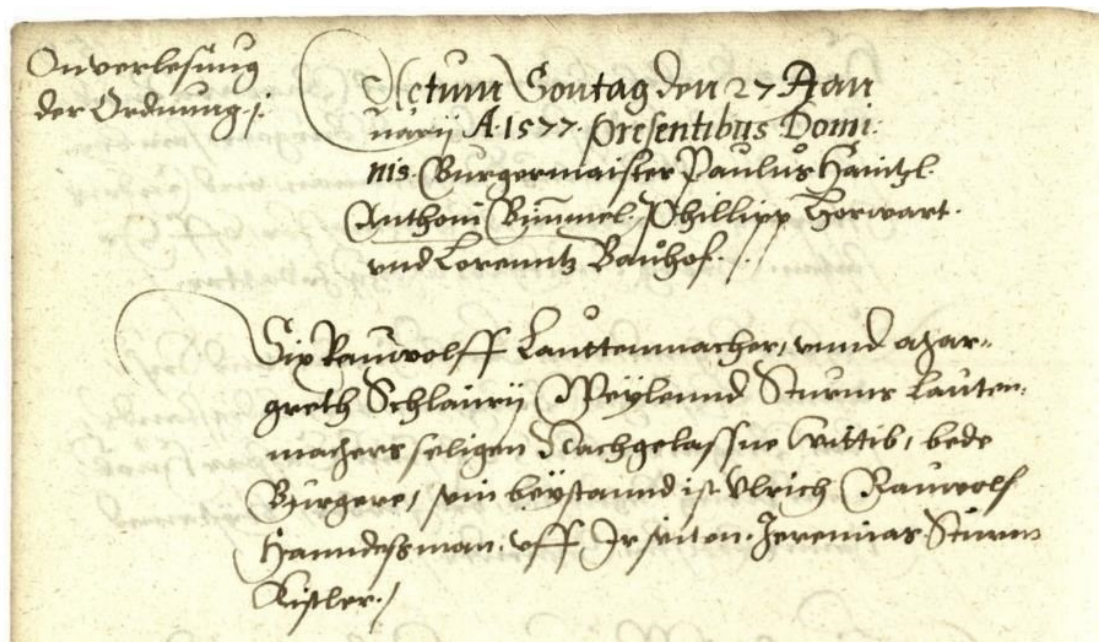 Onverlesung
der Ordnung ./.
Actum Sontag den 27 Jan
uarij A. 1577. presentibus Domi:
nis. Burgermaister Paulus Haintzl.
Anthoni Bimmel. Phillipp Herwart.
vnd Lorenntz Bauhof. /.
Six Rauwolff Lauttenmacher, vnnd Mar-
greth Schlaurij Weylennd Sturms Lauten-
machers seligen Nachgelassne Wittib, bede
Burgere, sein beystannd ist Vlrich Rauwolf
Hanndelßman. vff Jr seiten. Jeremias Sturm
Kistler. /